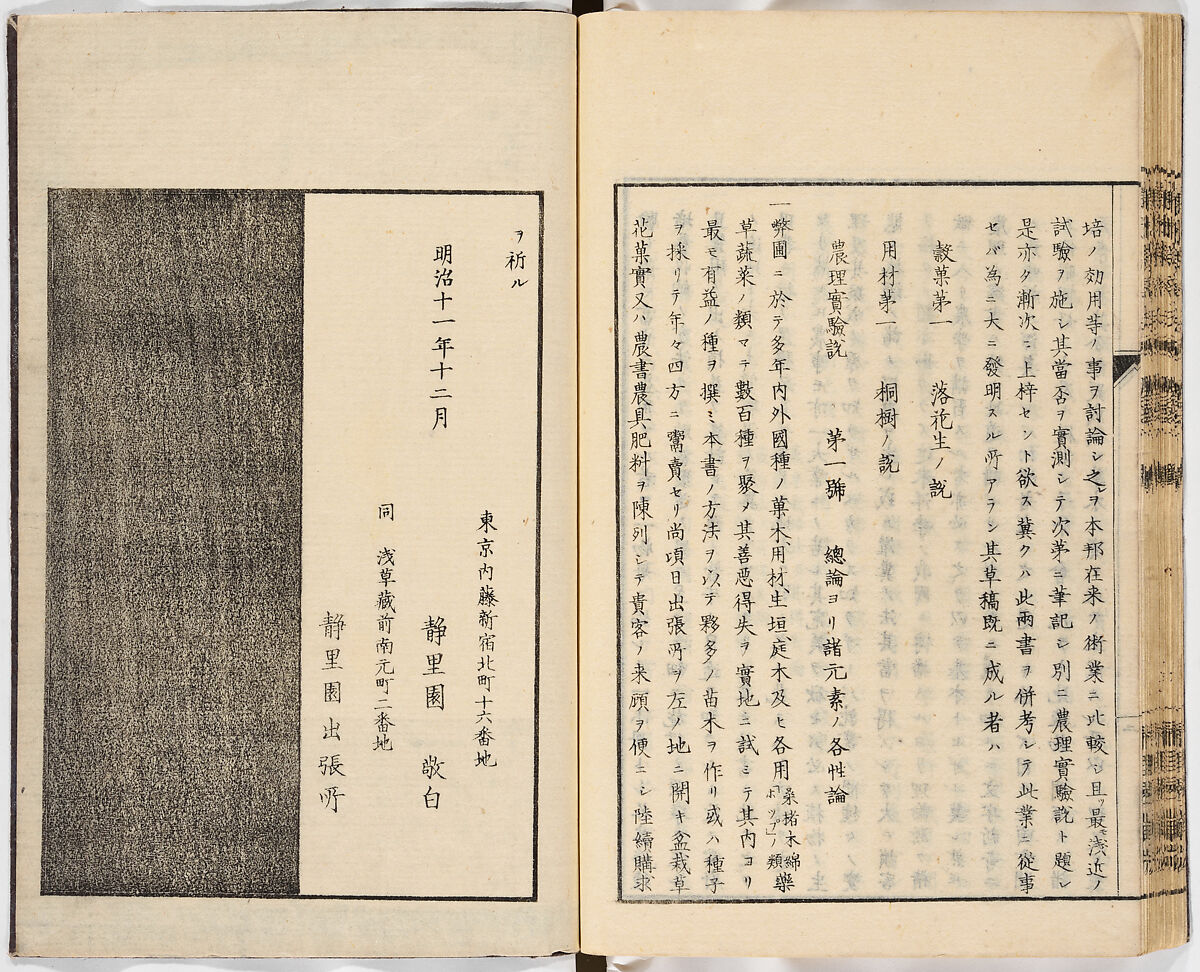 培ノ効用等ノ事ヲ討論シ之ヲ本邦在来ノ術業ニ比較シ且ッ最浅近ノ
試驗ヲ施シ其當否ヲ實測シテ次苐ニ筆記シ別ニ農理實驗説ト題シ
是亦タ漸次ニ上梓セント欲ス冀クハ此兩書ヲ併考シテ此業ニ從事
セバ為ニ大ニ發明スル所アラン其草稿既ニ成ル者ハ
穀菓苐一　落花生ノ説
用材苐一　桐樹ノ説
農理實驗説　苐一號　總論ヨリ諸元素ノ各性論
一弊園ニ於テ多年内外國種ノ菓木、用材、生垣、庭木及ヒ各用桑楮木綿「ホップ」ノ類藥
草蔬菜ノ類マテ數百種ヲ聚メ其善悪得失ヲ實地ニ試ミテ其内ヨリ
最モ有益ノ種ヲ撰ミ本書ノ方法ヲ以テ夥多ノ苗木ヲ作リ或ハ種子
ヲ採リテ年々四方ニ鬻賣セリ尚頃日出張所ヲ左ノ地ニ開キ盆栽草
花菓實又ハ農書農具肥料ヲ陳列シテ貴客ノ来顧ヲ便ニシ陸續購求
ヲ祈ル
明治十一年十二月
東京内藤新宿北町十六番地
静里園　敬白
同　浅草藏前南元町二番地
静里園出張所